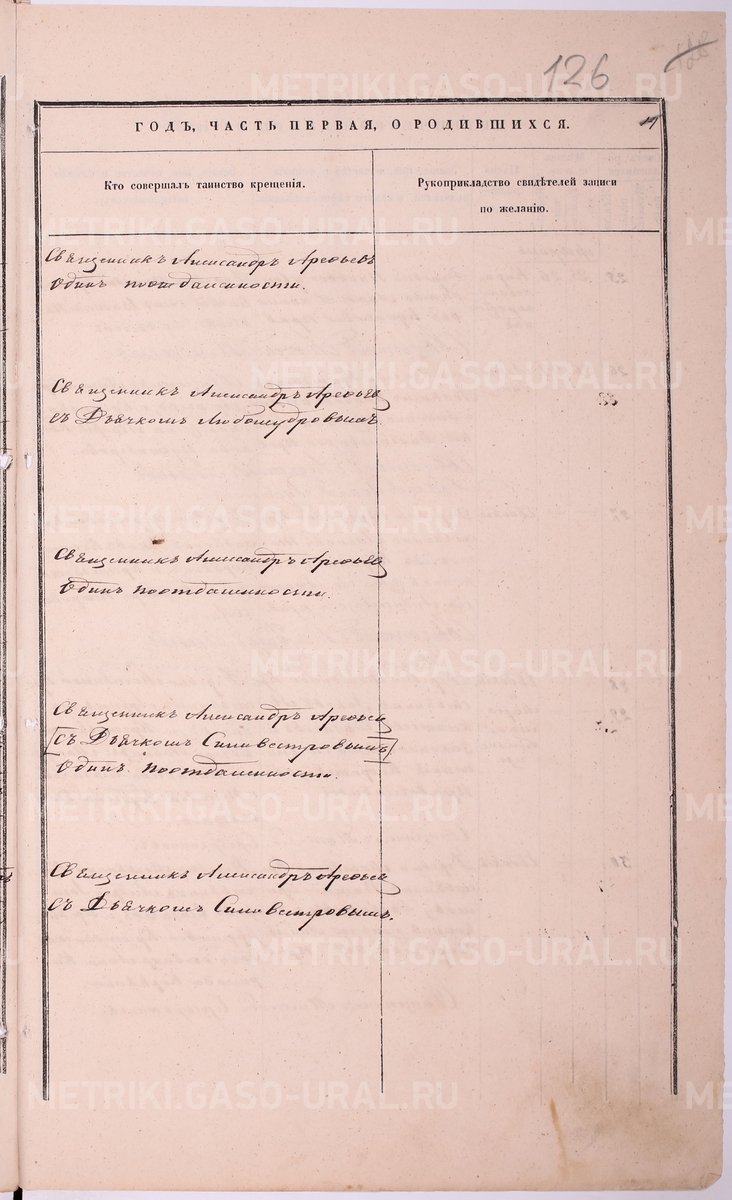 126
ГОДЪ, ЧАСТЬ ПЕРВАЯ, О РОДИВШИХСЯ.
Кто совершалъ таинство крещенія.
Рукоприкладство свидѣтелей записи
по желанію.
Священникъ Александръ Арефьевъ
Одинъ поотдаленности.
Священникъ Александръ Арефьев
съ Дьячкомъ Любомудровымъ.
Священникъ Александръ Арефьев
Одинъ поотдаленности.
Священникъ Александръ Арефьев
[съ Дьячкомъ Силивестровымъ]
Одинъ поотдаленности.
Священникъ Александръ Арефьев
съ Дьячкомъ Силивестровымъ.
METRIKI.GASO-URAL.RU